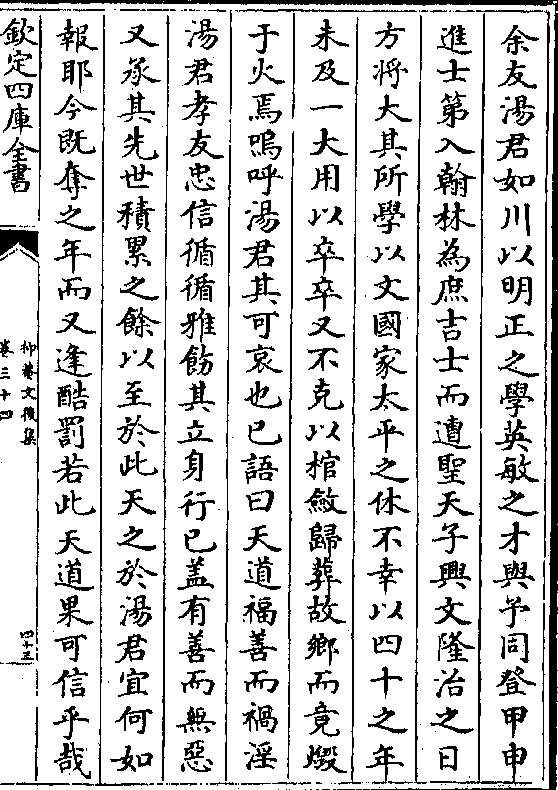 余友湯君如川以明正之學英敏之才與予同登甲申
進士第入翰林為庶吉士而遭聖天子興文隆治之日
方將大其所學以文國家太平之休不幸以四十之年
未及一大用以卒卒又不克以棺斂歸葬故鄉而竟燬
于火焉嗚呼湯君其可哀也已語曰天道福善而禍淫
湯君孝友忠信循循雅飭其立身行已盖有善而無惡
又承其先世積累之餘以至於此天之於湯君宜何如
報耶今既奪之年而又逢酷罰若此天道果可信乎哉
欽定四庫全書
抑菴文後集
卷三十四
四十三